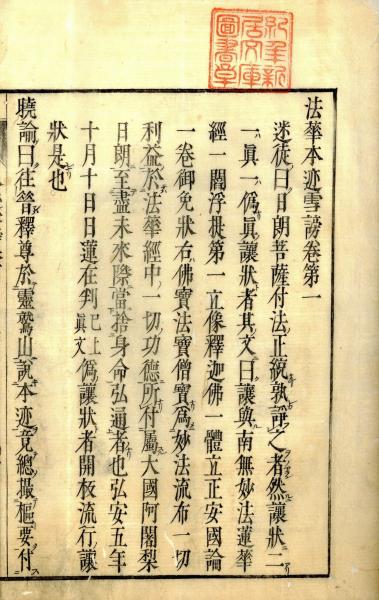 法華本迹雪謗卷第一
迷徒曰日朗菩薩付法正統孰諍之者然讓狀二
一眞一僞眞讓狀者其文曰讓與南無妙法蓮華
經一閻浮提第一立像釋迦佛一體立正安國論
一卷御免狀右佛寶法寶僧寶爲妙法流布一切
利益於法華經中一切功德所付屬大國阿闍梨
日朗至盡未來際當捨身命弘通者也弘安五年
十月十日日蓮在判已上眞文僞讓狀者開板流行讓
狀是也
曉諭曰往昝釋尊於靈鷲山說本迹竟總撮樞要付